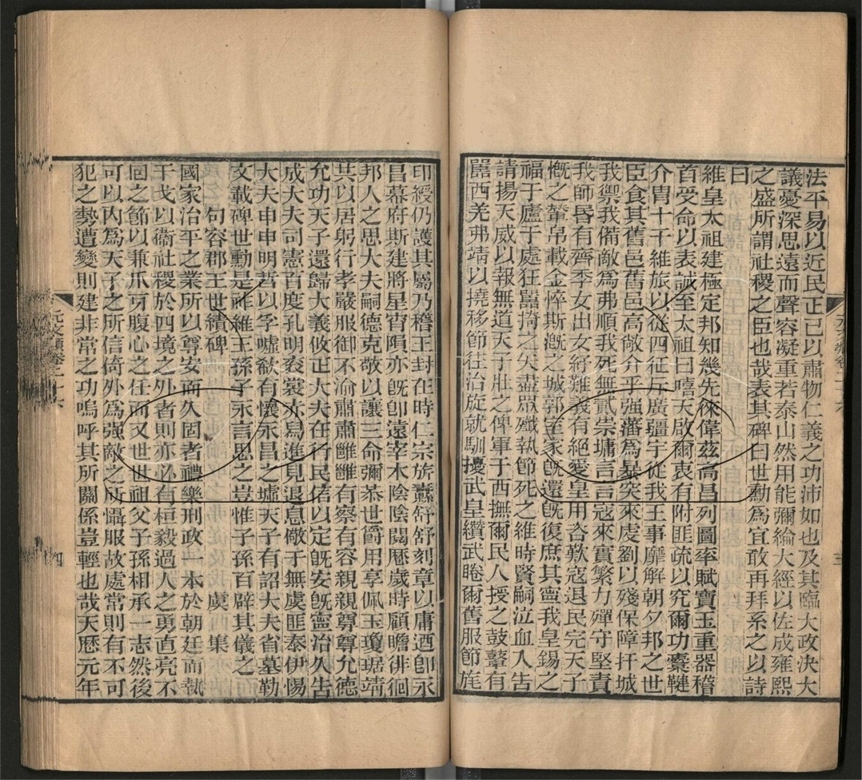 法平易以近民正已以肅物仁義之功沛如也及其臨大政決大
議憂深思遠而聲容凝重若泰山然用能彌綸大經以佐成雍熙
之盛所謂社稷之臣也哉表其碑曰世勳為宜敢再拜系之以詩
曰
維皇太祖建極定邦知幾先徠偉茲高昌列圖率賦寶玉重器稽
首受命以表誠至太祖曰嘻天啟爾衷有附匪疏以究爾功櫜鞬
介冑十千維旅以從四征斥廣疆宇從我王事靡解朝夕邦之世
臣食其舊邑舊邑高敞介乎強藩為暴突來虔劉以殘保障扞城
我禦我備敵為弗順我死無貳崇墉言言寇來實繁力殫守堅責
我師昏有齊季女出女紓難我有絕愛皇用咨歎寇退民完天子
慨之輦帛載金悴斯溉之城郭室家既還既復庶其寧我皇錫之
福于廬于處狂嚚掎之矢盡眾殲執節死之維時賢嗣泣血入告
請揚天威以報無道天子壯之俾軍于西撫爾民人授之鼓鼙有
嚚西羌弗靖以撓移節往治旋就馴擾武皇纘武睠爾舊服節旄
印綬仍護其屬乃稽王封在時仁宗旂纛舒舒刻章以庸迺即永
昌幕府斯建將星宵隕亦既即遠宰木陰陰閱歷歲時顧瞻徘徊
邦人之思大夫嗣德克敬以讓三命彌恭世爵用享佩玉瓊琚靖
共以居躬行孝嚴服御不渝肅肅雝雝有察有容親親尊尊允德
允功天子還歸大義攸正大夫在行民信以定既安既寧治久告
成大夫司憲百度孔明袞裳亦舃進見退息儆于無虞匪泰伊惕
大夫申申明哲以孚噓欷有懷永昌之墟天子有詔大夫省墓勒
文載碑世勳是祚維王孫子永言思之豈惟子孫百辟其儀之
句容郡王世績碑 虞集
國家治平之業所以尊安而久固者禮樂刑政一本於朝廷而執
干戈以衛社稷於四境之外者則亦必有桓毅過人之勇直亮不
回之節以兼爪牙腹心之任而又世世祖父子孫相承一志然後
可以內為天子之所信倚外為強敵之所懾服故處常則有不可
犯之勢遭變則建非常之功嗚呼其所關係豈輕也哉天歷元年
元文類卷二十六
四